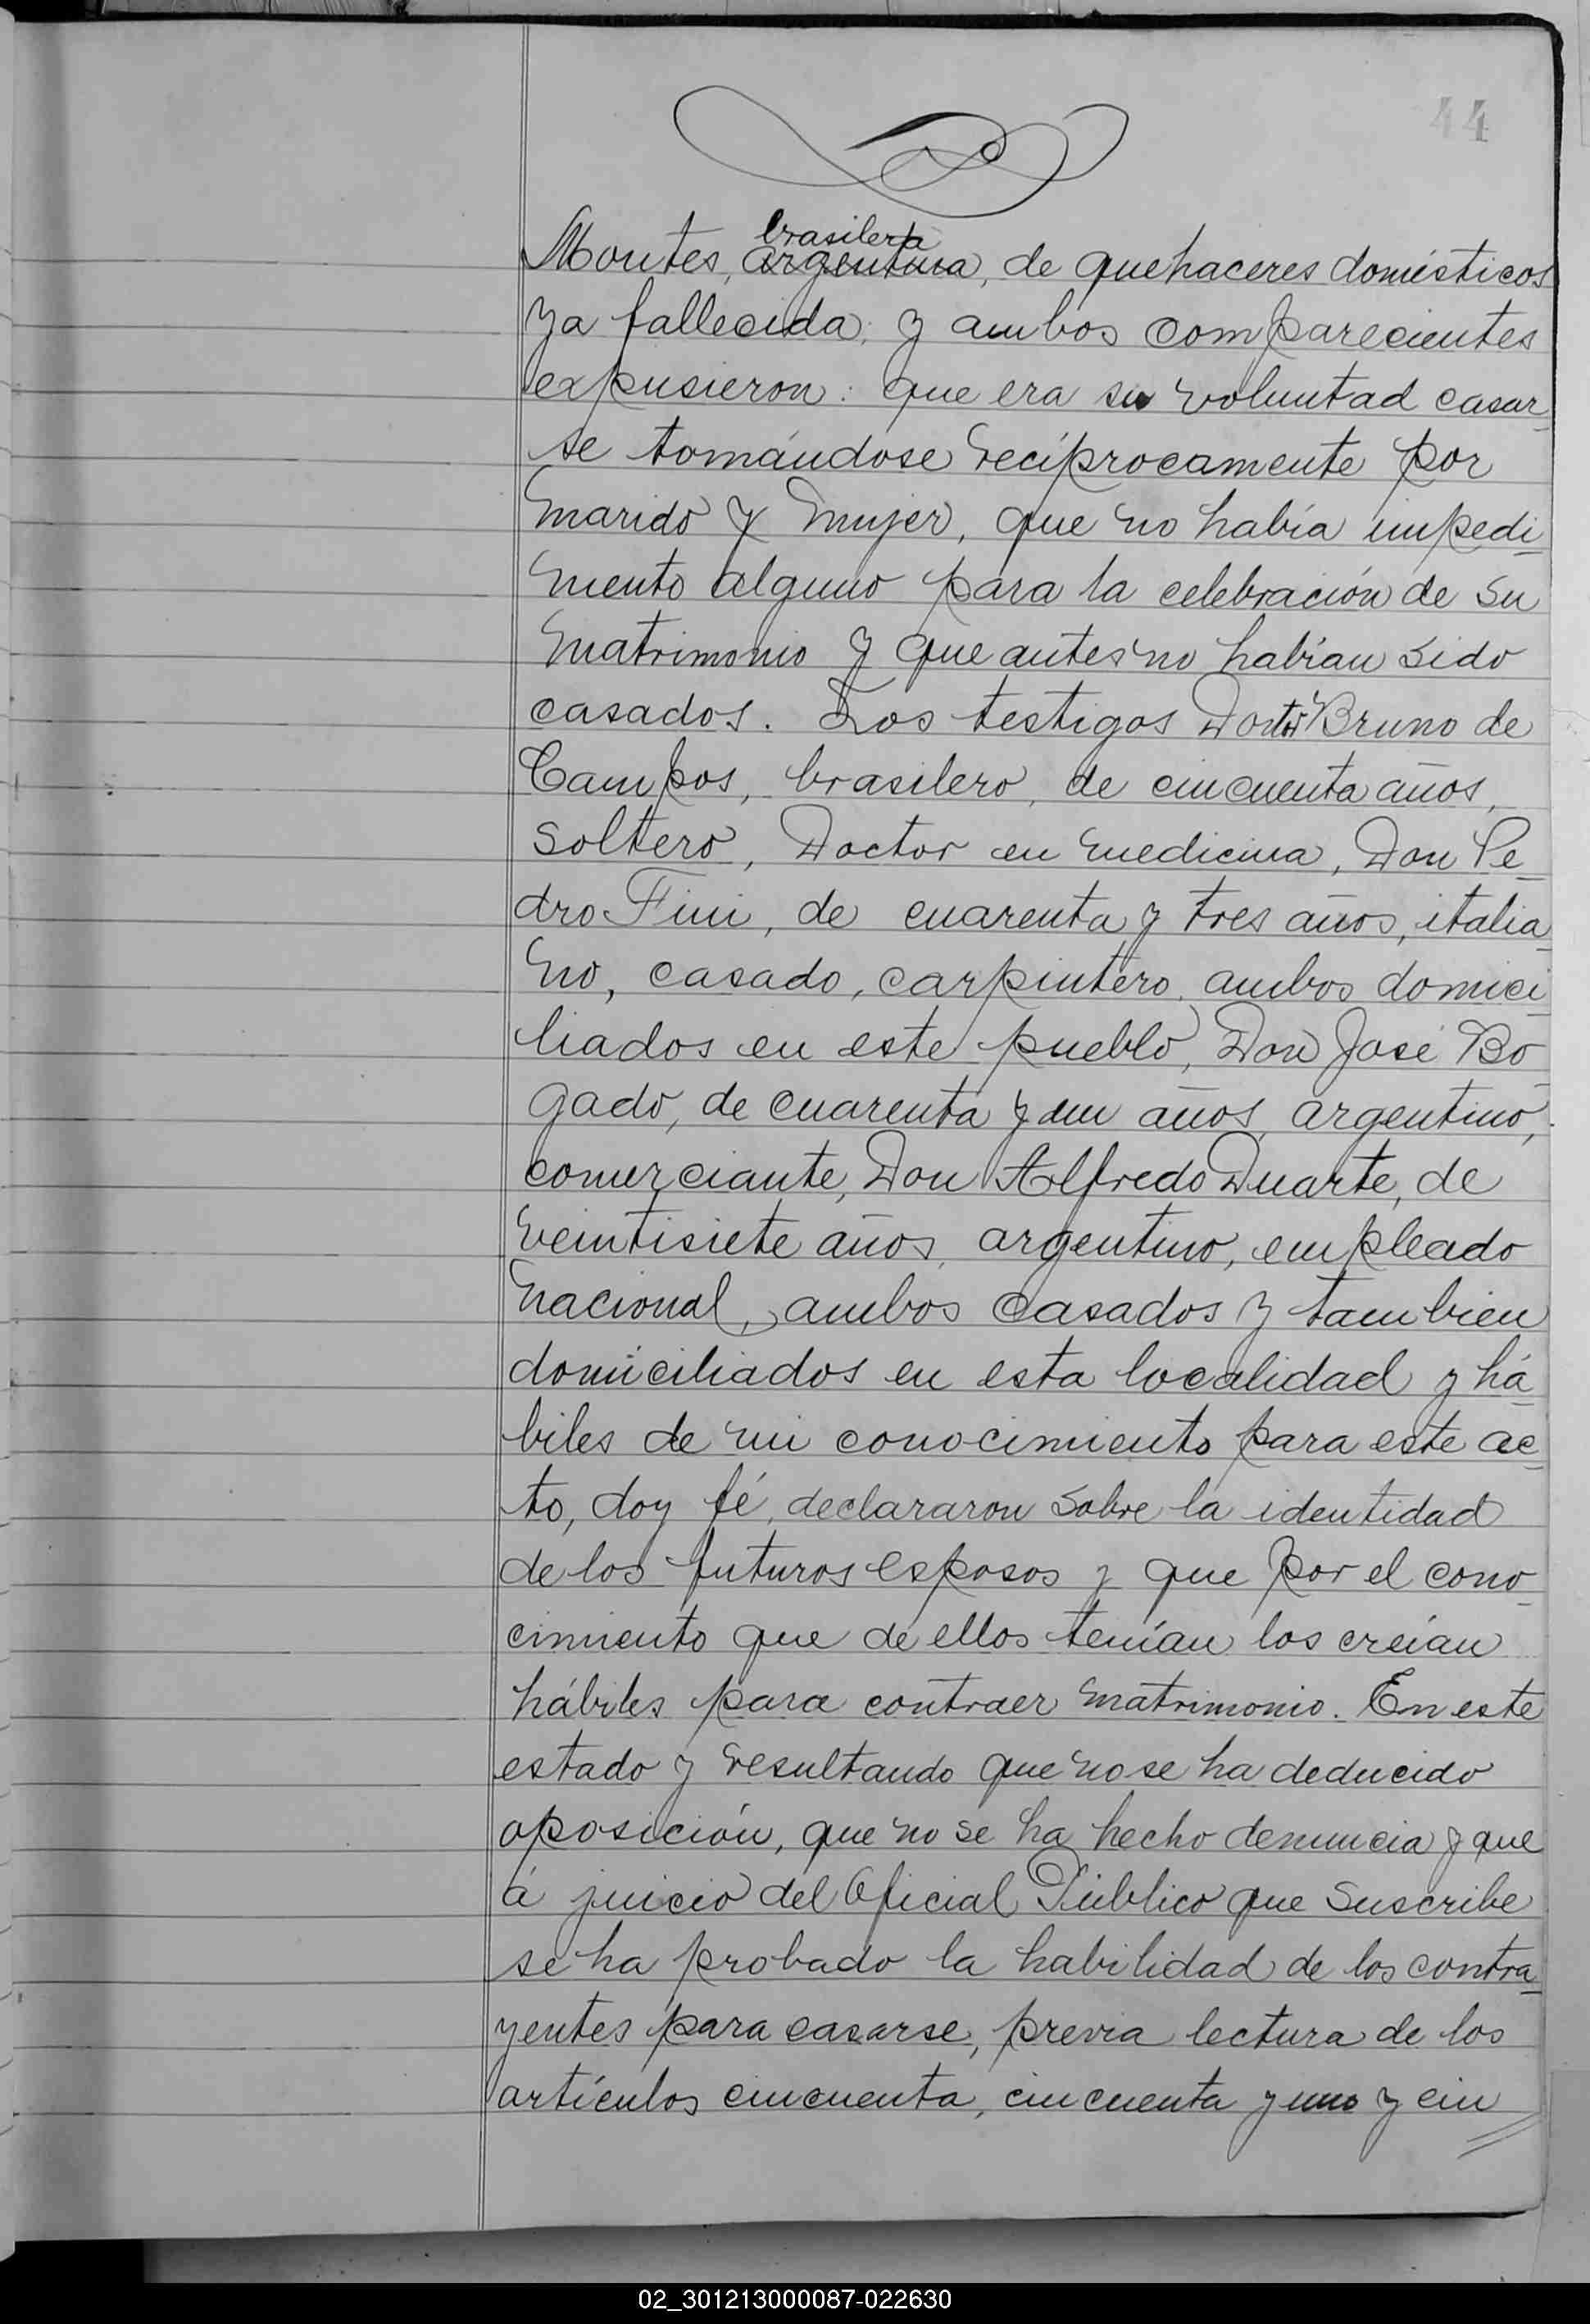 44
brasilera
Montes, argentina, de quehaceres domésticos
ya fallecida; y ambos comparecientes
expusieron: que era su voluntad casar-
se tomándose recíprocamente por
marido y mujer, que no había impedi-
mento alguno para la celebración de su
matrimonio y que antes no habían sido
casados. Los testigos Doctor Bruno de
Campos, brasilero, de cincuenta años,
soltero, Doctor en medicina, Don Pe-
dro Fini, de cuarenta y tres años, italia-
no, casado, carpintero, ambos domici-
liados en este pueblo, Don José Bo-
gado, de cuarenta y un años, argentino,
comerciante, Don Alfredo Duarte, de
veintisiete años, argentino, empleado
nacional, ambos casados y tambien
domiciliados en esta localidad y há-
biles de mi conocimiento para este ac-
to, doy fé, declararon sobre la identidad
de los futuros esposos y que por el cono-
cimiento que de ellos tenían los creían
hábiles para contraer matrimonio. En este
estado y resultando que no se ha deducido
oposición, que no se ha hecho denuncia y que
á juicio del Oficial Público que suscribe
se ha probado la habilidad de los contra-
yentes para casarse, previa lectura de los
artículos cincuenta, cincuenta y uno y cin
02_301213000087-022630